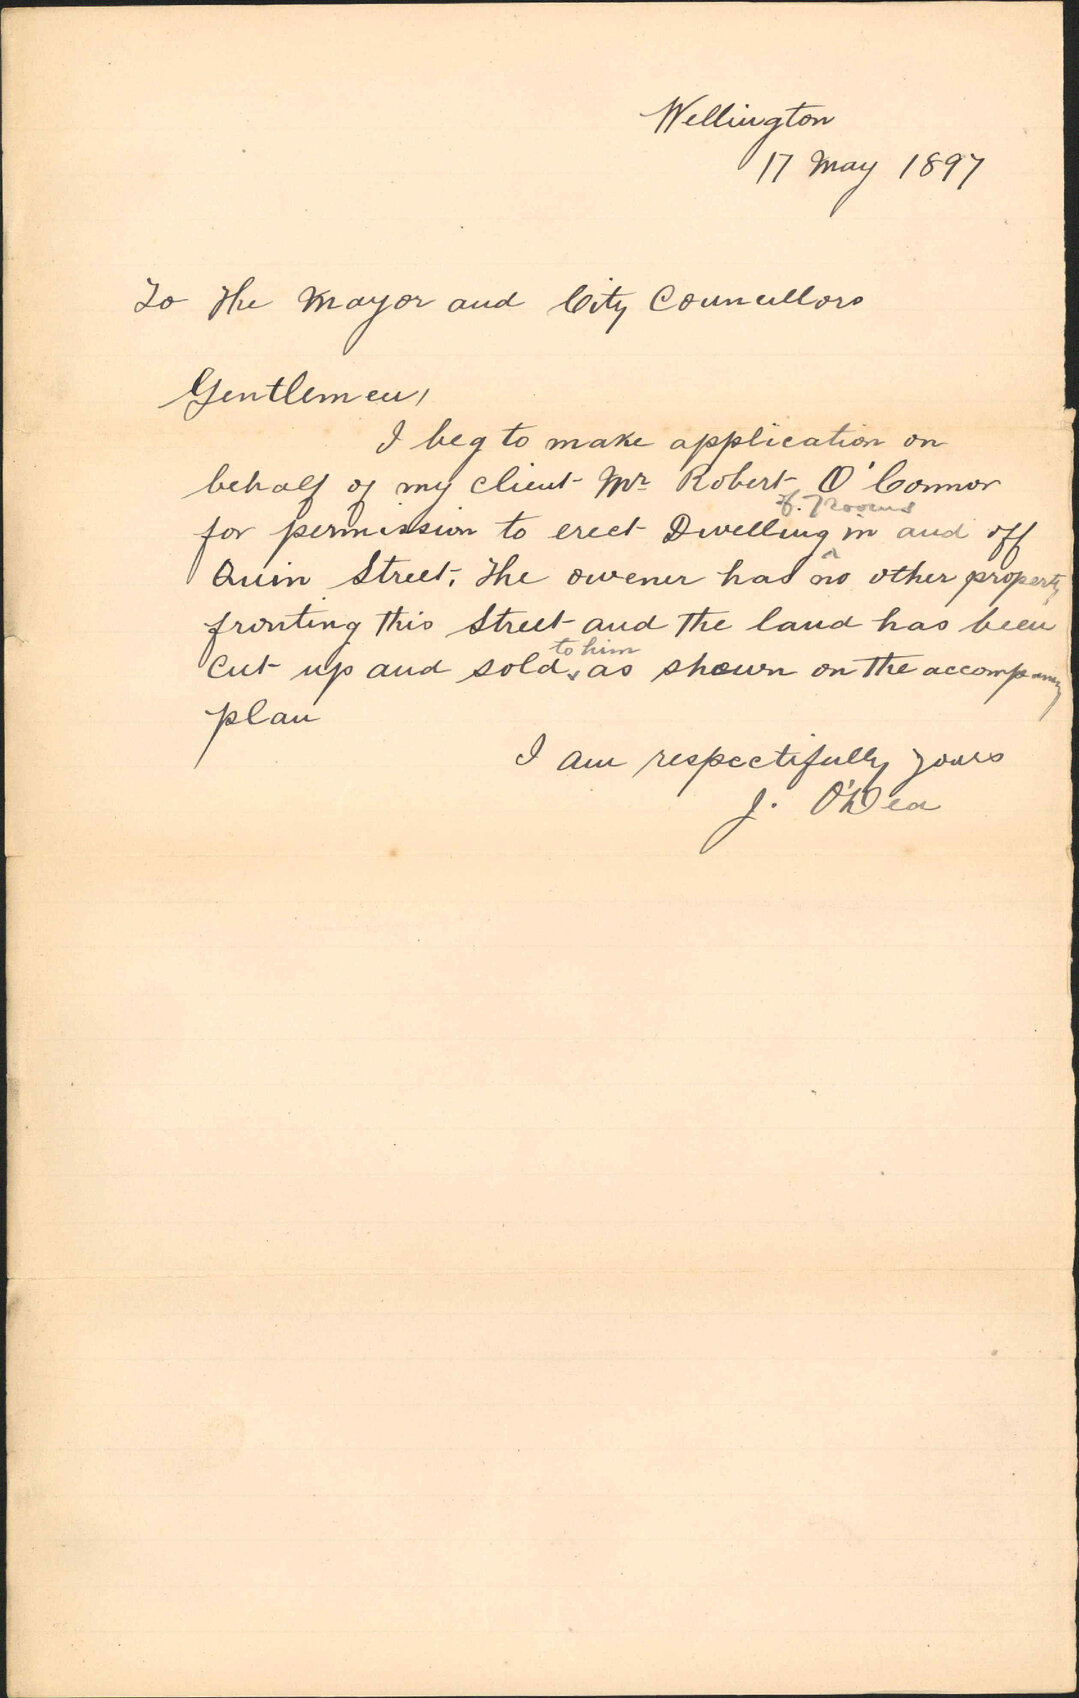 Wellington
17 May 1897
To the Mayor and City Councullors
Gentlemen,
I beg to make application on
behalf of my client Mr Robert O'Connor
of. 7 rooms
for permission to erect Dwelling in and off
Quin Street. The owener has no other property
fronting this Street and the land has been
to him
cut up and sold, as shown on the accompaning
plan
I am respectifully yours
J. O'Dea